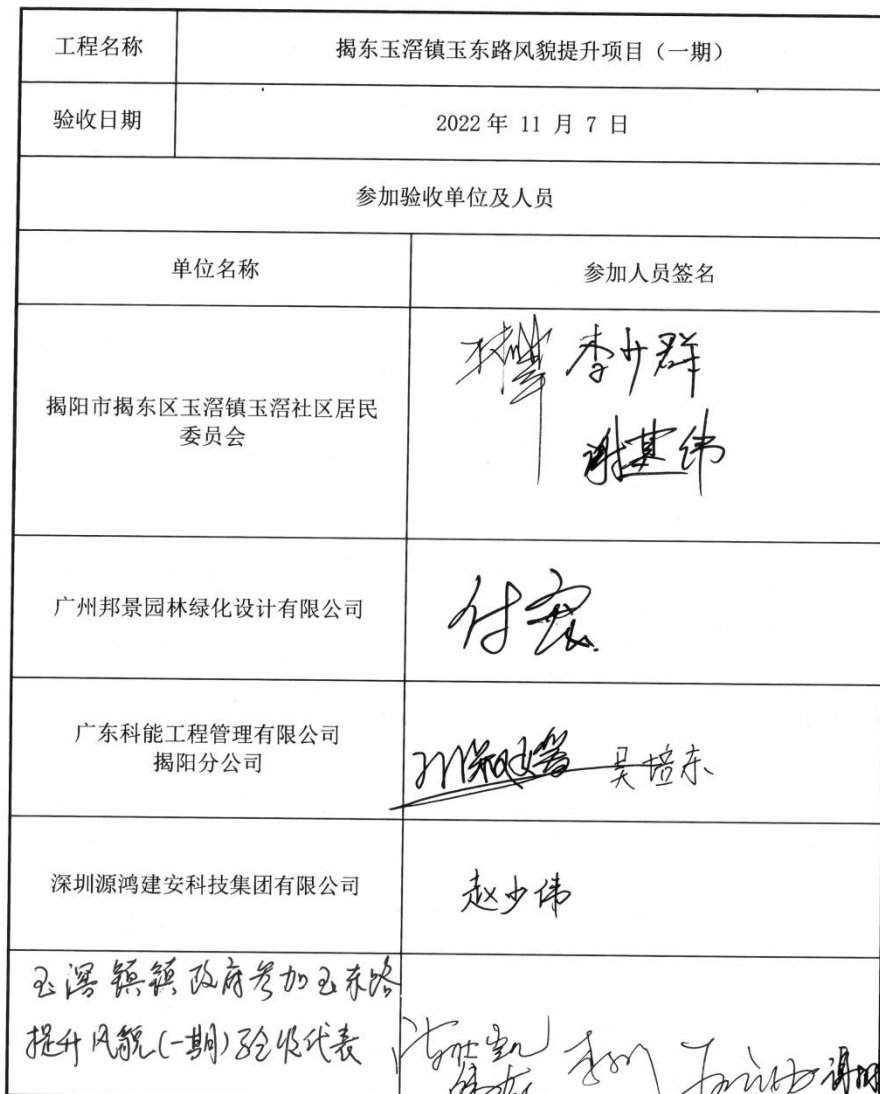 工程名称 揭东玉滘镇玉东路风貌提升项目（一期）
验收日期 2022 年 11 月 7 日
参加验收单位及人员
单位名称 参加人员签名
李少群
揭阳市揭东区玉滘镇玉滘社区居民
委员会
谢其纬
广州邦景园林绿化设计有限公司
广东科能工程管理有限公司
揭阳分公司
吴培东
深圳源鸿建安科技集团有限公司 赵少伟
玉滘镇镇政府参加玉东路
提升风貌(一期)验收代表